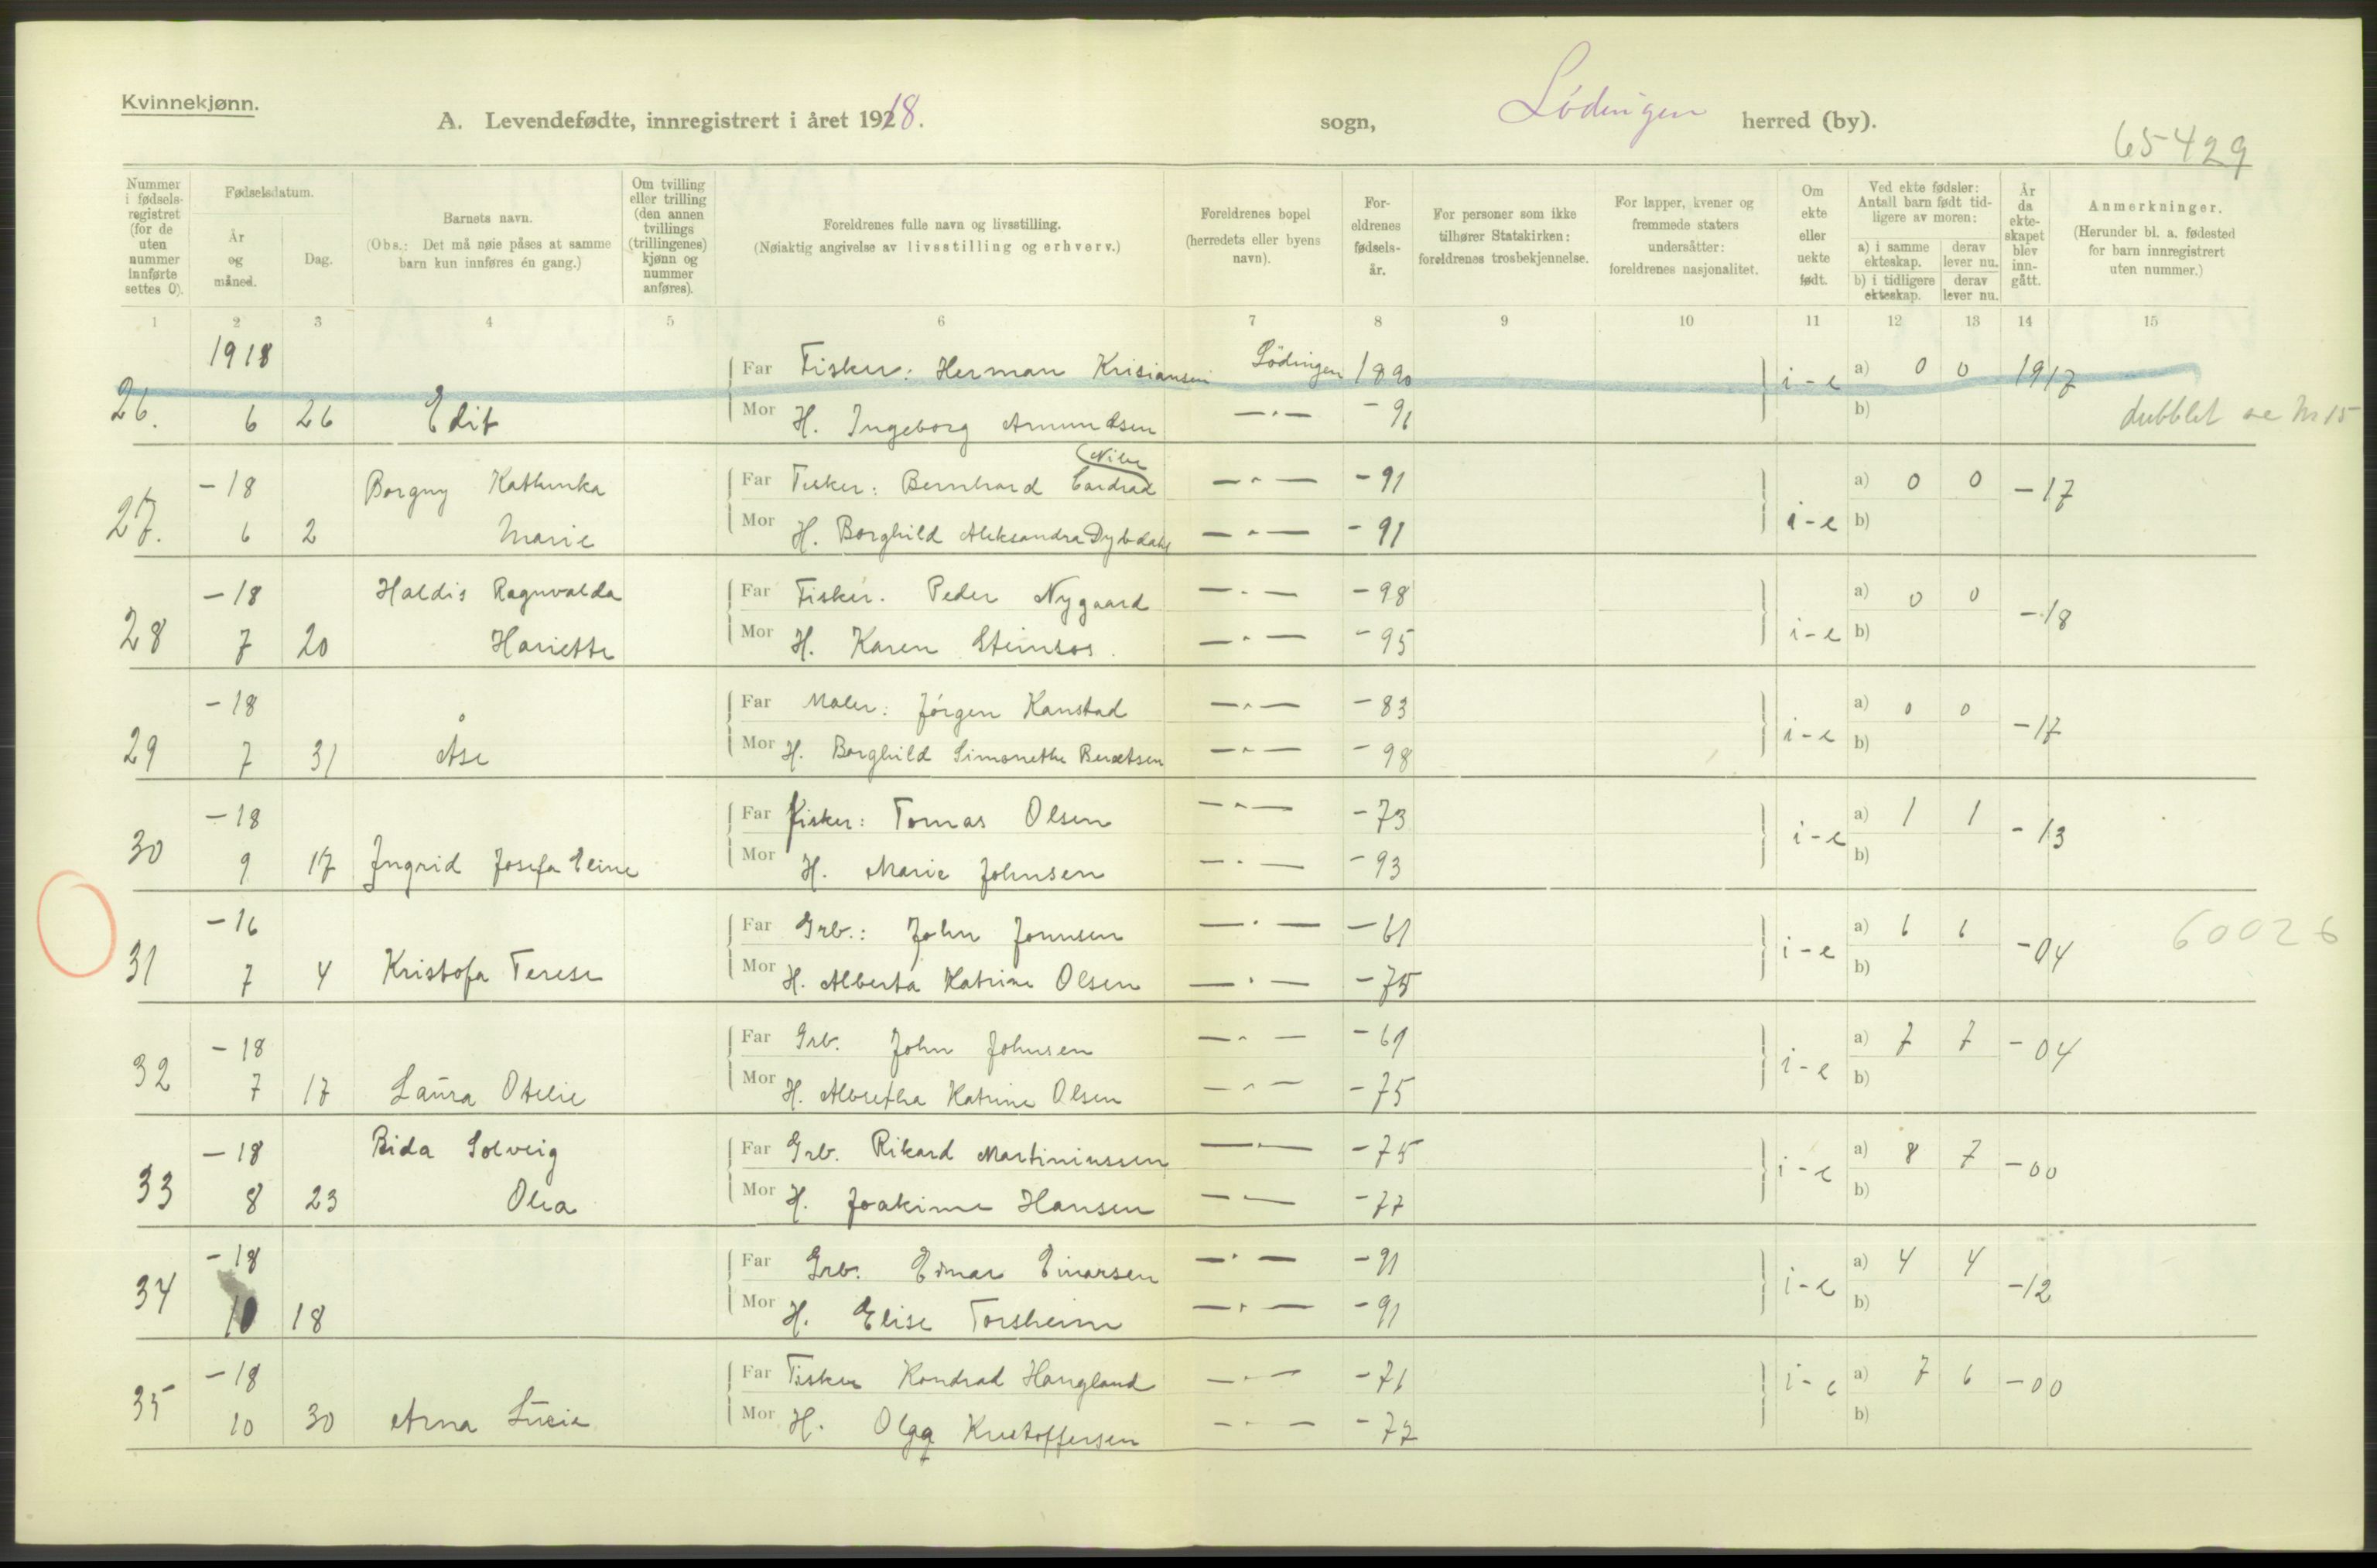 Kvinnekjønn.
A. Levendefødte, innregistrert i året 1918. sogn, Lödingen herred (by).
65429
Nummer i fødselsregistret (for de uten nummer innførte settes 0).
Fødselsdatum.
År og måned.
Dag.
Barnets navn.
(Obs.: Det må nøie påses at samme barn kun innføres én gang.)
Om tvilling eller trilling (den annen tvillings (trillingenes) kjønn og nummer anføres).
Foreldrenes fulle navn og livsstilling.
(Nøiaktig angivelse av livsstilling og erhverv.)
Foreldrenes bopel (herredets eller byens navn).
Foreldrenes fødselsår.
For personer som ikke tilhører Statskirken: foreldrenes trosbekjennelse.
For lapper, kvener og fremmede staters undersåtter: foreldrenes nasjonalitet.
Om ekte eller uekte født.
Ved ekte fødsler: Antall barn født tidligere av moren:
a) i samme ekteskap. derav lever nu.
b) i tidligere ekteskap. derav lever nu.
År da ekteskapet blev inngått.
Anmerkninger.
(Herunder bl. a. fødested for barn innregistrert uten nummer.)
1 2 3 4 5 6 7 8 9 10 11 12 13 14 15
1918 Far Fisker: Herman Krisiansen Lödingen 1890 i-e a) 0 0 1917
26. 6 26 Edit Mor H. Ingeborg Amundsen —"— -91 b) dubblet se Nr 15
-18 Borgny Kathinka Far Fisker: Bernhard —"— -91 a) 0 0 -17
27. 6 2 Marie Mor H. Borghild Aleksandra Dybdahl —"— -91 i-e b)
-18 Haldis Ragnvalda Far Fisker. Peder Nygaard —"— -98 a) 0 0 -18
28 7 20 Hariette Mor H. Karen Steinsos. —"— -95 i-e b)
-18 Far Maler: Jörgen Kanstad —"— -83 a) 0 0 -17
29 7 31 Åse Mor H. Borghild Simonethe —"— -98 i-e b)
-18 Far Fisker: Tomas Olsen —"— -73 a) 1 1 -13
30 9 17 Ingrid Josefa Eline Mor H. Marie Johnsen —"— -93 i-e b)
-16 Far Grb.: John Jonnsen —"— -61 a) 6 6 -04 60026
31 7 4 Kristofa Terese Mor H. Alberta Katrine Olsen —"— -75 i-e b)
-18 Far Grb. John Johnsen —"— -61 a) 7 7 -04
32 7 17 Laura Otelie Mor H. Albretha Katrine Olsen —"— -75 i-e b)
-18 Bida Solveig Far Grb. Rikard Martiniussen —"— -75 a) 8 7 -00
33 8 23 Olea Mor H. Joakime Hansen —"— -77 i-e b)
-18 Far Grb. Einar Einarsen —"— -91 a) 4 4 -12
34 10 18 Mor H. Elise Torsheim —"— -91 i-e b)
-18 Far Fisker Kondrad Haugland —"— -71 a) 7 6 -00
35 10 30 Arna Lucie Mor H. Olga Kristoffersen —"— -77 i-e b)